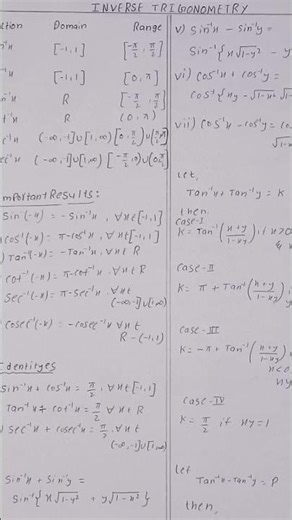 INVERSE TRIGONOMETRY
Domain Range
[-1,1] [-π/2, π/2]
[-1,1] [0, π]
R [-π/2, π/2]
R (0, π)
(-∞,-1]∪[1,∞) [0, π/2)∪(π/2, π]
(-∞,-1]∪[1,∞) [-π/2, 0)∪(0, π/2]
Important Results:
Sin⁻¹(-x) = -Sin⁻¹x, ∀x∈[-1,1]
cos⁻¹(-x) = π-cos⁻¹x, ∀x∈[-1,1]
Tan⁻¹(-x) = -Tan⁻¹x, ∀x∈R
cot⁻¹(-x) = π-cot⁻¹x, ∀x∈R
Sec⁻¹(-x) = π-sec⁻¹x, ∀x∈
(-∞,-1]∪[1,∞)
cosec⁻¹(-x) = -cosec⁻¹x ∀x∈
R-(-1,1)
Identityes
Sin⁻¹x + cos⁻¹x = π/2, ∀x∈[-1,1]
Tan⁻¹x + cot⁻¹x = π/2 ∀x∈R
sec⁻¹x + cosec⁻¹x = π/2, ∀x∈
(-∞,-1]∪[1,∞)
Sin⁻¹x + Sin⁻¹y =
Sin⁻¹{x√1-y² + y√1-x²}
v) Sin⁻¹x - Sin⁻¹y =
Sin⁻¹{x√1-y² - y
vi) cos⁻¹x + cos⁻¹y =
cos⁻¹{xy - √1-x²
vii) cos⁻¹x - cos⁻¹y =
Let,
Tan⁻¹x + Tan⁻¹y = K
then
Case-I
K = Tan⁻¹(x+y/1-xy), if x>0
Case-II
K = π + Tan⁻¹(x+y/1-xy),
Case-III
K = -π + Tan⁻¹(x+y/1-xy),
x<0,
xy
Case-IV
K = π/2 if xy=1
let
Tan⁻¹x - Tan⁻¹y = P
then,